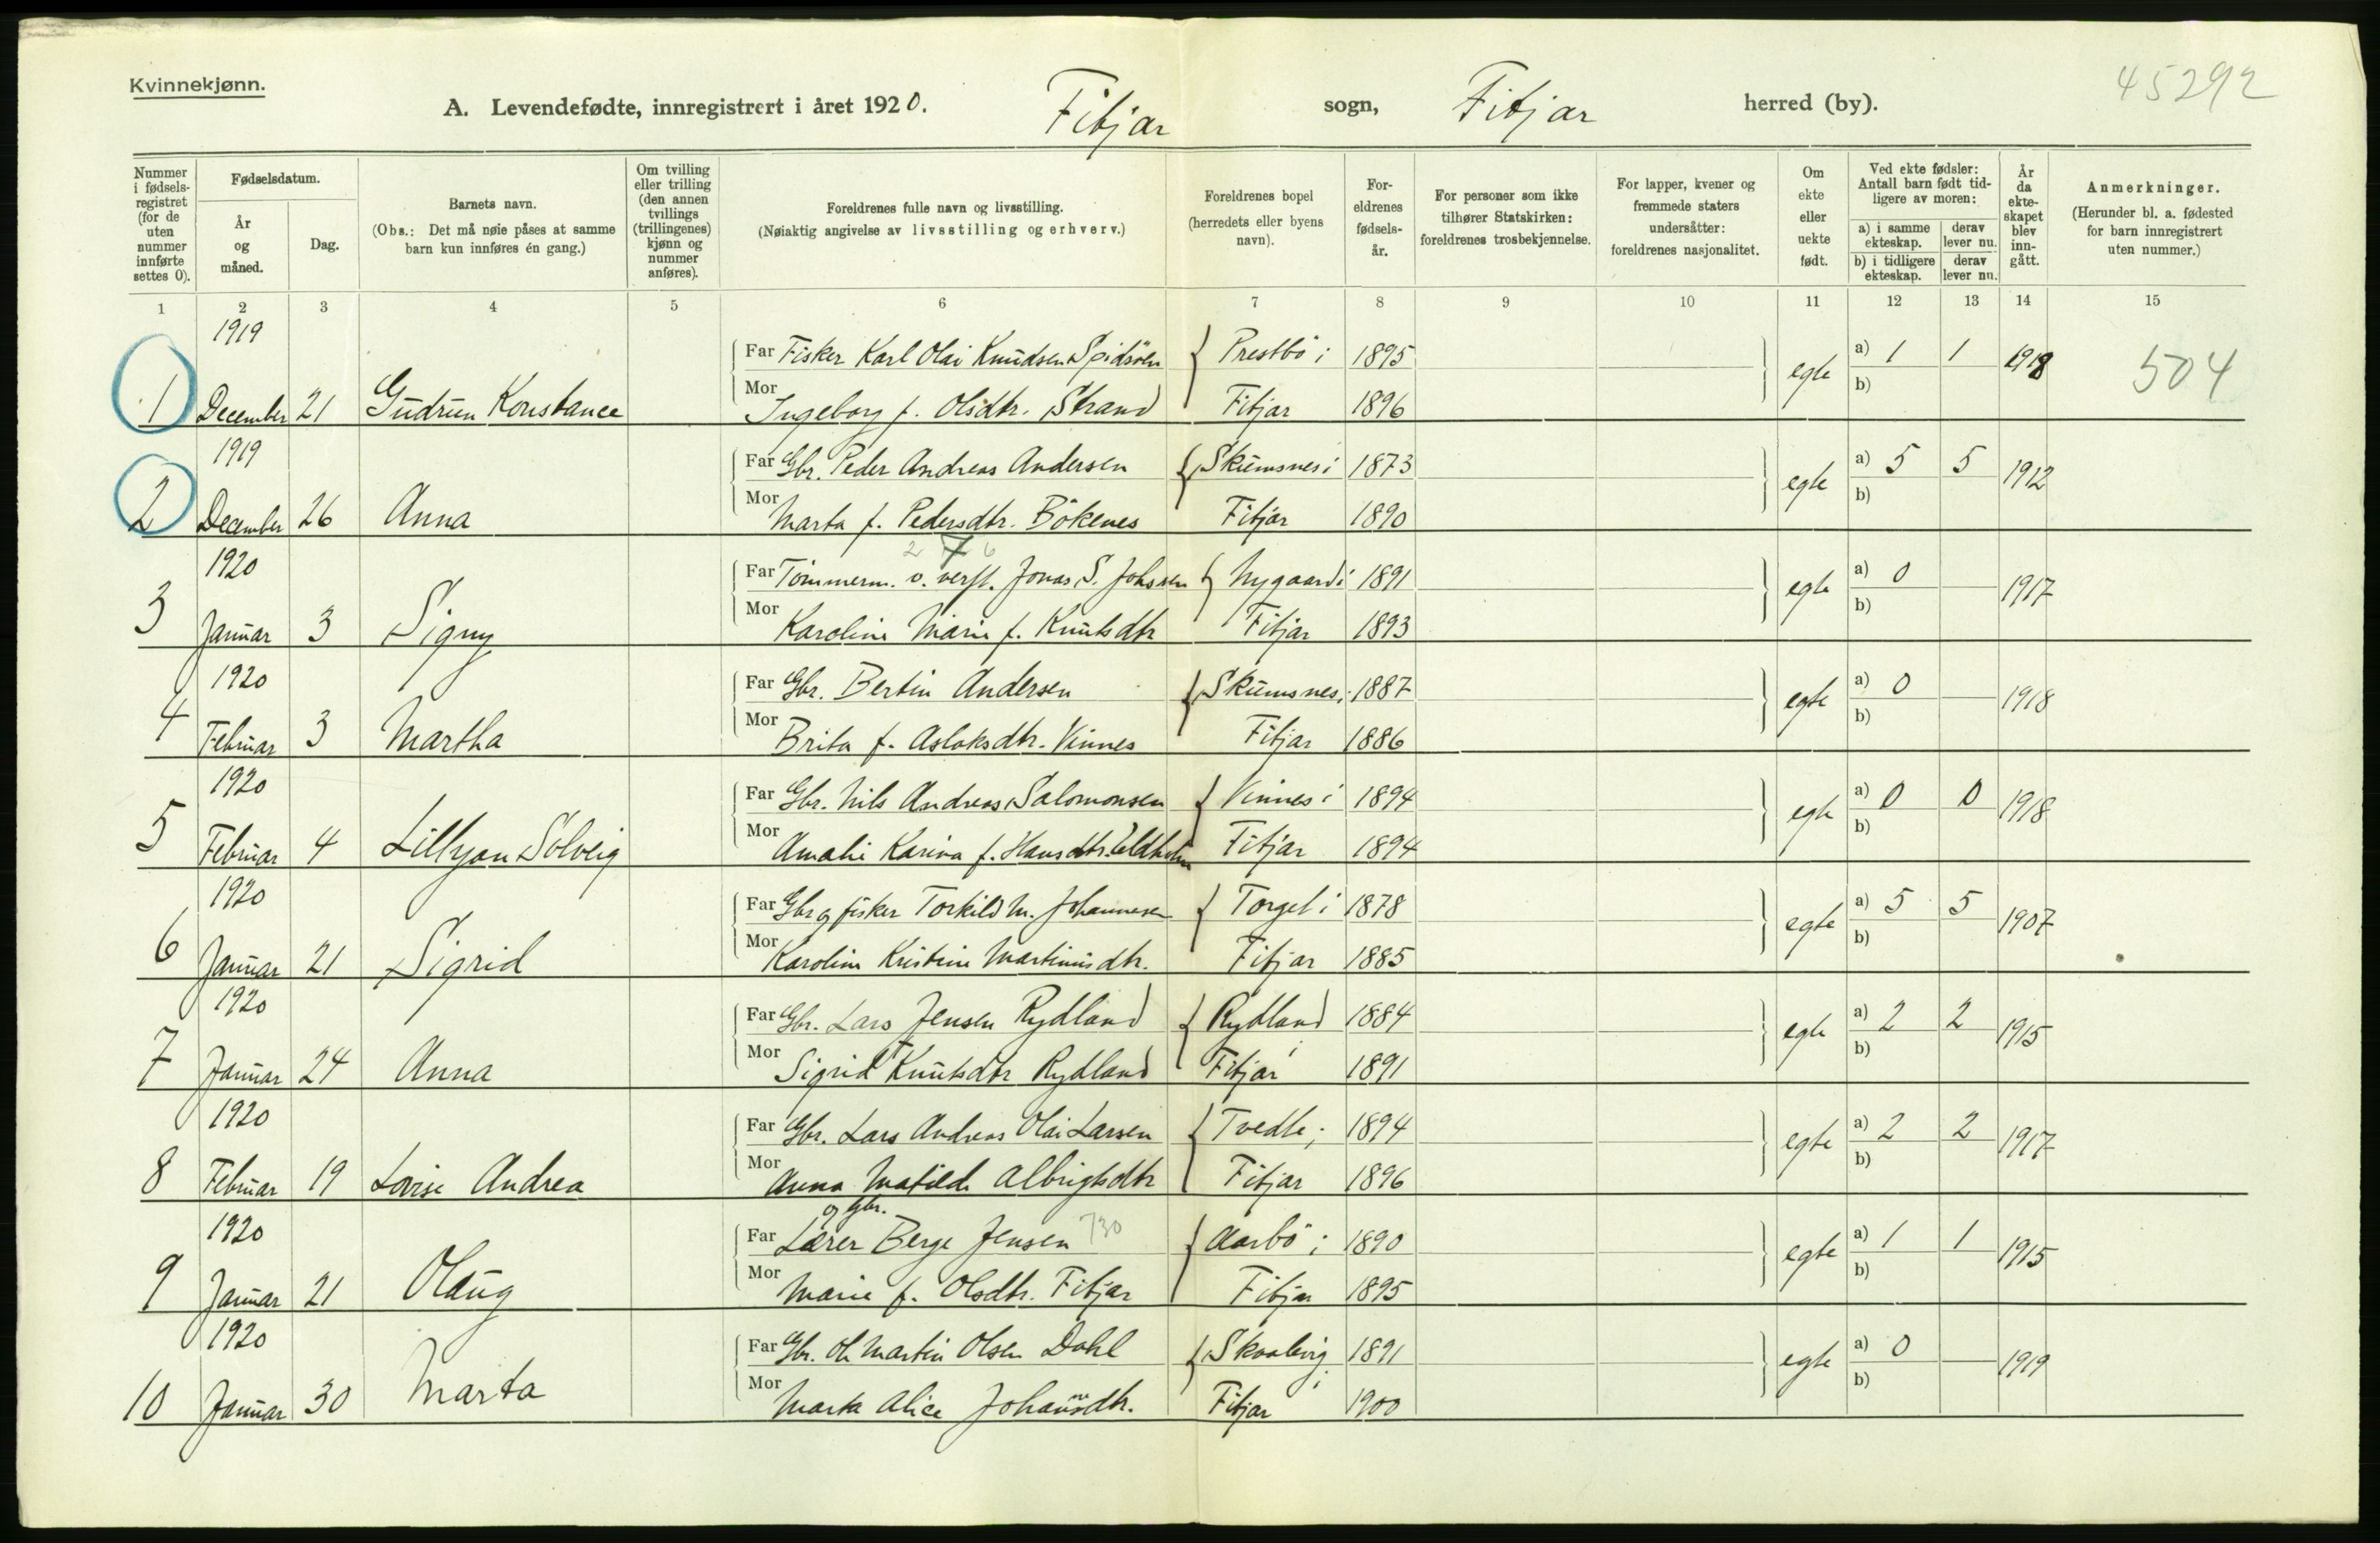 Kvinnekjønn.
45292
A. Levendefødte, innregistrert i året 1920. Fitjar sogn, Fitjar herred (by).
Nummer i fødsels-registret (for de uten nummer innførte settes 0).
Fødselsdatum.
År og måned.
Dag.
Barnets navn.
(Obs.: Det må nøie påses at samme barn kun innføres én gang.)
Om tvilling eller trilling (den annen tvillings (trillingenes) kjønn og nummer anføres).
Foreldrenes fulle navn og livsstilling.
(Nøiaktig angivelse av livsstilling og erhverv.)
Foreldrenes bopel (herredets eller byens navn).
For-eldrenes fødsels-år.
For personer som ikke tilhører Statskirken: foreldrenes trosbekjennelse.
For lapper, kvener og fremmede staters undersåtter: foreldrenes nasjonalitet.
Om ekte eller uekte født.
Ved ekte fødsler: Antall barn født tid-ligere av moren:
a) i samme ekteskap. derav lever nu.
b) i tidligere ekteskap. derav lever nu.
År da ekte-skapet blev inn-gått.
Anmerkninger.
(Herunder bl. a. fødested for barn innregistrert uten nummer.)
1 2 3 4 5 6 7 8 9 10 11 12 13 14 15
1919
Far Fisker Karl Olai Knudsen Spidsöen Prestbö i 1895 egte a) 1 1 1918 504
1 December 21 Gudrun Konstance Mor Ingeborg f. Olsdtr. Strand Fitjar 1896 b)
1919
Far Gbr. Peder Andreas Andersen Skumsnes i 1873 egte a) 5 5 1912
2 December 26 Anna Mor Marta f. Pedersdtr. Bökenes Fitjar 1890 b)
2 7 6
1920
Far Tömmerm. v. verft. Jonas S. Johnsen Nygaard i 1891 egte a) 0 — 1917
3 Januar 3 Signy Mor Karoline Marie f. Knutsdtr Fitjar 1893 b)
1920
Far Gbr. Bertin Andersen Skumsnes i 1887 egte a) 0 — 1918
4 Februar 3 Martha Mor Brita f. Aslaksdtr. Vinnes Fitjar 1886 b)
1920
Far Gbr. Nils Andreas Salomonsen Vinnes i 1894 egte a) 0 0 1918
5 Februar 4 Lillyan Solveig Mor Amalie Karina f. Hansdtr. Fitjar 1894 b)
1920
Far Gbr og fisker Torkild M. Johannesen Torget i 1878 egte a) 5 5 1907
6 Januar 21 Sigrid Mor Karoline Kristine Martinusdtr. Fitjar 1885 b)
1920
Far Gbr. Lars Jensen Rydland Rydland i 1884 egte a) 2 2 1915
7 Januar 24 Anna Mor Sigrid Knutsdtr Rydland Fitjar 1891 b)
1920
Far Gbr. Lars Andreas Olai Larsen Tvedte i 1894 egte a) 2 2 1917
8 Februar 19 Lovise Andrea Mor Anna Matilde Albrigtsdtr Fitjar 1896 b)
og Gbr.
1920
Far Lærer Berge Jensen 730 Aarbö i 1890 egte a) 1 1 1915
9 Januar 21 Olaug Mor Marie f. Olsdtr. Fitjar Fitjar 1895 b)
1920
Far Gbr. Ole Martin Olsen Dahl i 1891 egte a) 0 — 1919
10 Januar 30 Marta Mor Marta Alice Johannsdtr. Fitjar 1900 b)